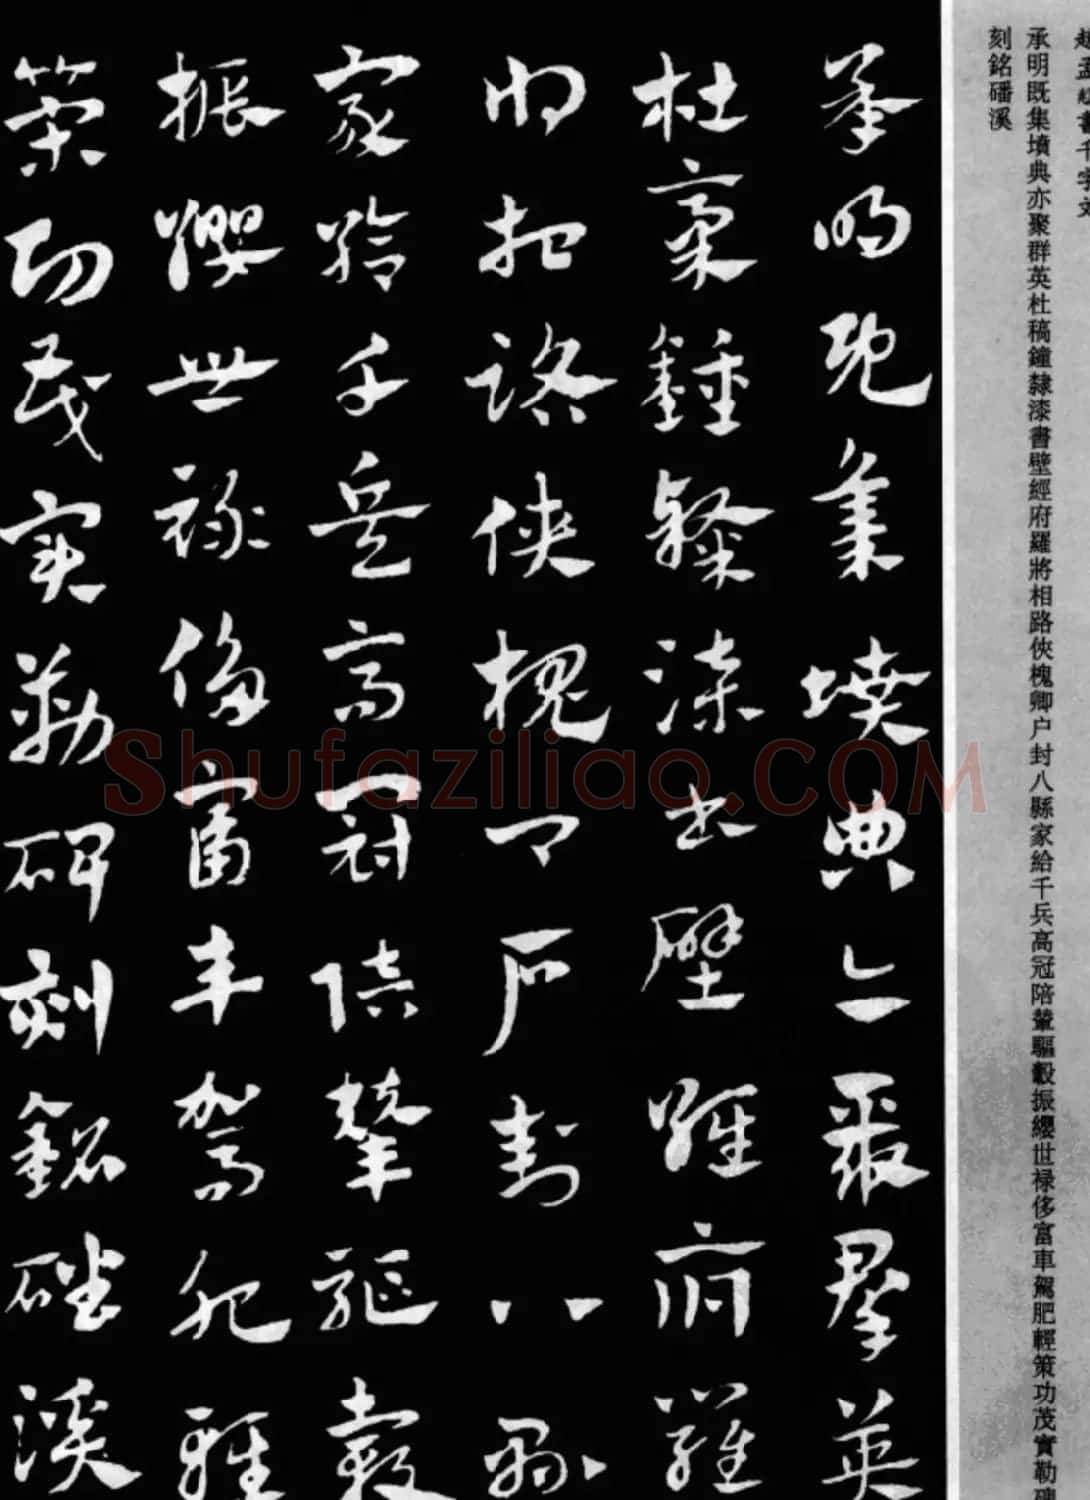 趙孟頫書千字文
承明既集墳典亦聚群英杜稿鐘隸漆書壁經府羅將相路俠槐卿户封八縣家給千兵高冠陪輦驅轂振纓世禄侈富車駕肥輕策功茂實勒碑
刻銘磻溪
承明既集墳典亦聚群英
杜稾鍾隸漆書壁經府羅
將相路俠槐卿户封八縣
家給千兵高冠陪輦驅轂
振纓世禄侈富車駕肥輕
策功茂實勒碑刻銘磻溪
Shufaziliao.COM